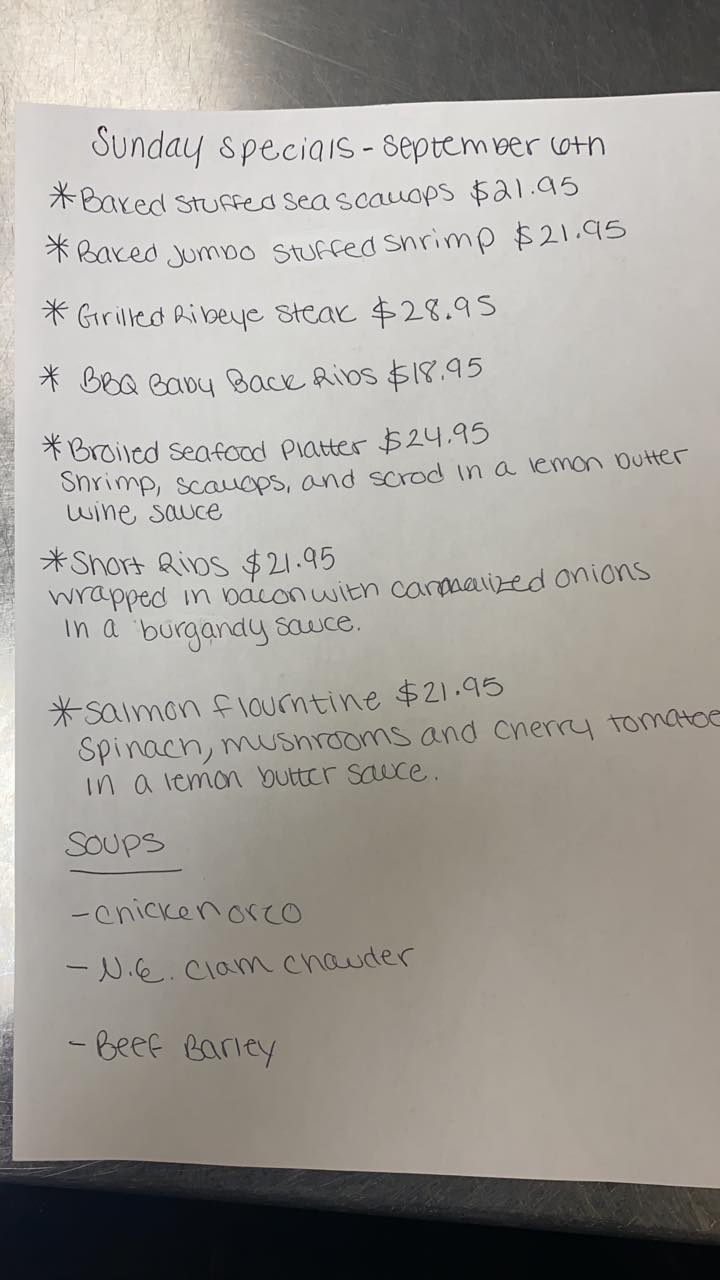 Sunday Specials - September 6th
* Baked Stuffed Sea Scallops $21.95
* Baked Jumbo Stuffed Shrimp $21.95
* Grilled Ribeye Steak $28.95
* BBQ Baby Back Ribs $18.95
* Broiled Seafood Platter $24.95
Shrimp, scallops, and scrod in a lemon butter
wine sauce
* Short Ribs $21.95
wrapped in bacon with carmalized onions
in a burgandy sauce.
* Salmon flourntine $21.95
Spinach, mushrooms and cherry tomatoe
in a lemon butter sauce.
SOUPS
- Chicken orzo
- N.E. Clam Chowder
- Beef Barley